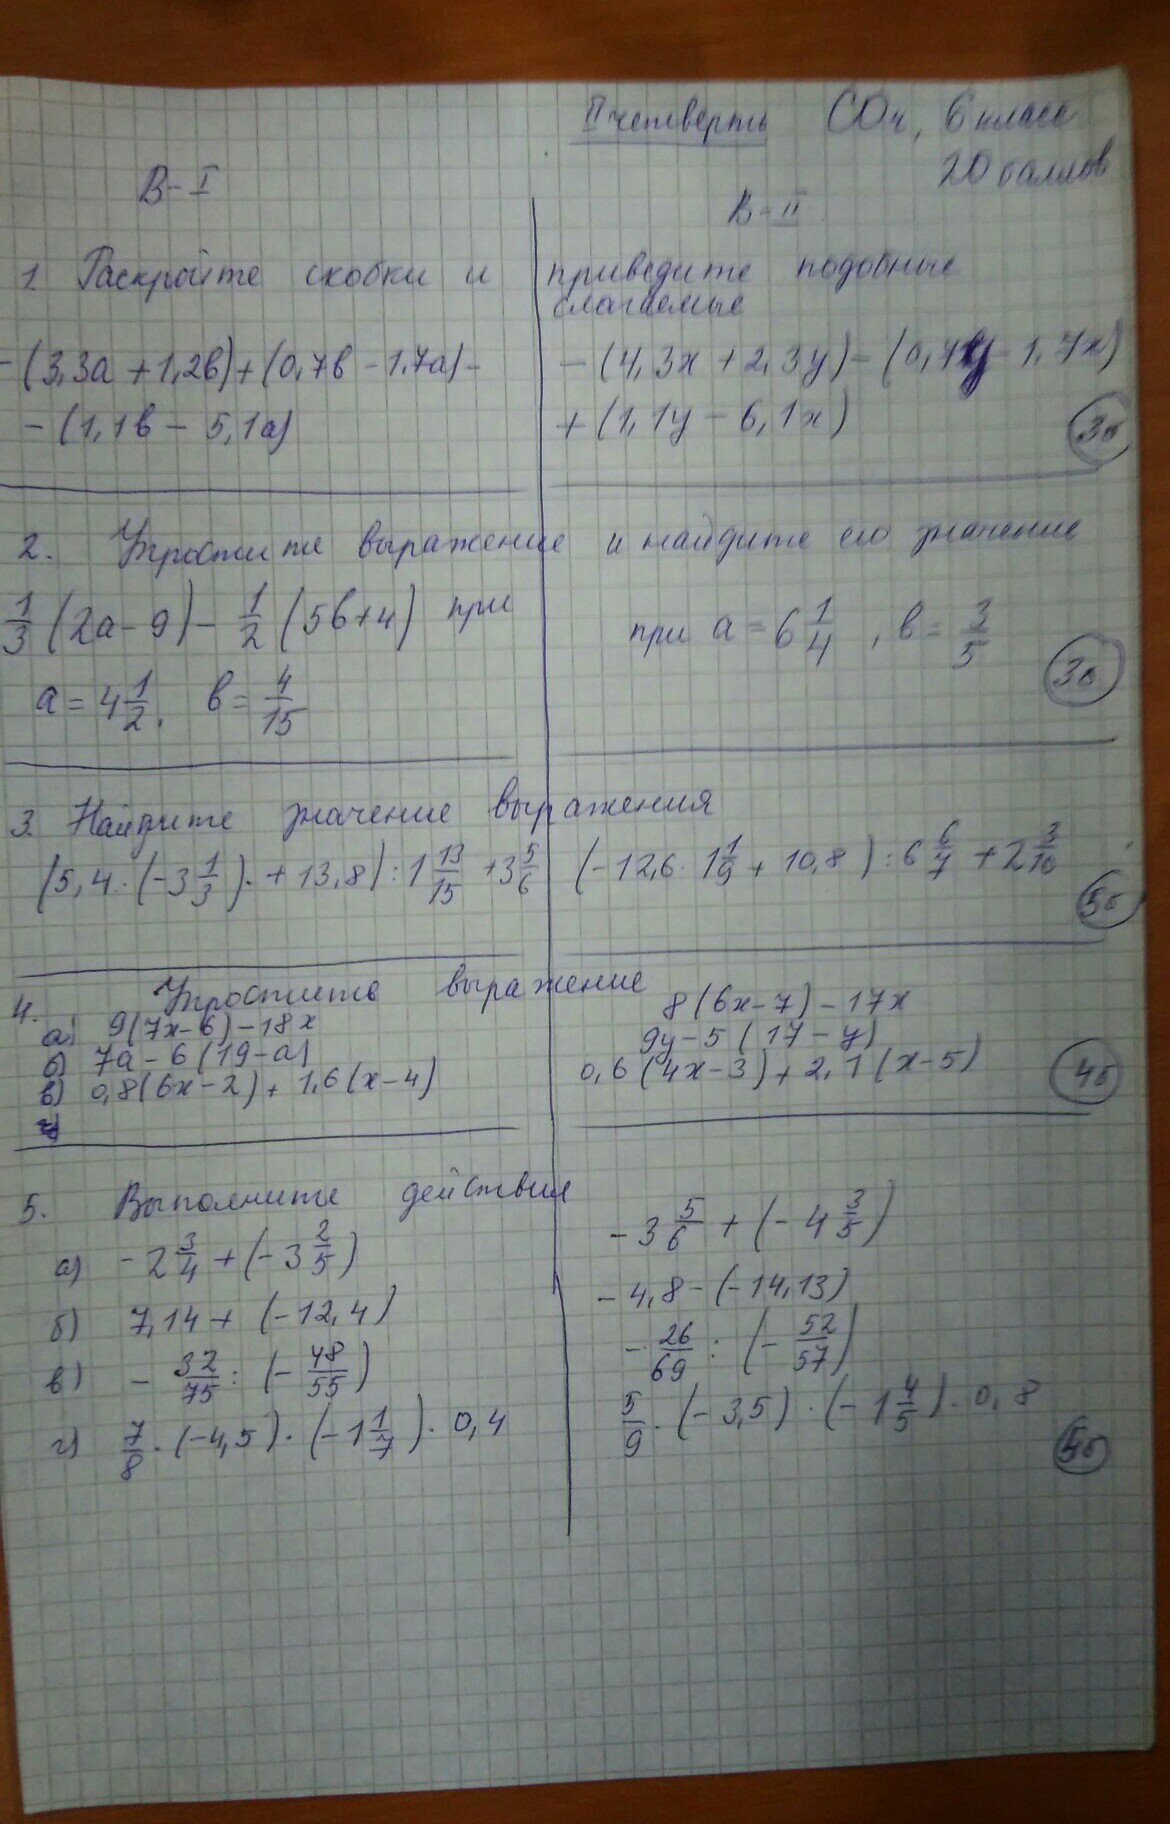 II четверть СОч, 6 класс
20 баллов
В-I
В-II
1. Раскройте скобки и приведите подобные
слагаемые
-(3,3а + 1,2в) + (0,7в - 1,7а) -
- (1,1в - 5,1а)
-(4,3х + 2,3у) - (0,4у - 1,7х)
+ (1,1у - 6,1х)
3б
2. Упростите выражение и найдите его значение
1/3 (2а - 9) - 1/2 (5в + 4) при
а = 4 1/2, в = 4/15
при а = 6 1/4, в = 3/5
3б
3. Найдите значение выражения
(5,4 · (-3 1/3) · + 13,8) : 1 13/15 + 3 5/6
(-12,6 · 1 1/9 + 10,8) : 6 6/7 + 2 3/10
5б
4. Упростить выражение
а) 9(7х - 6) - 18х
б) 7а - 6(19 - а)
в) 0,8(6х - 2) + 1,6(х - 4)
8(6х - 7) - 17х
9у - 5(17 - у)
0,6(4х - 3) + 2,1(х - 5)
4б
5. Выполните действия
а) -2 3/4 + (-3 2/5)
б) 7,14 + (-12,4)
в) - 32/75 : (- 48/55)
г) 7/8 · (-4,5) · (-1 1/7) · 0,4
-3 5/6 + (-4 3/5)
-4,8 - (-14,13)
- 26/69 : (- 52/57)
5/9 · (-3,5) · (-1 4/5) · 0,8
5б